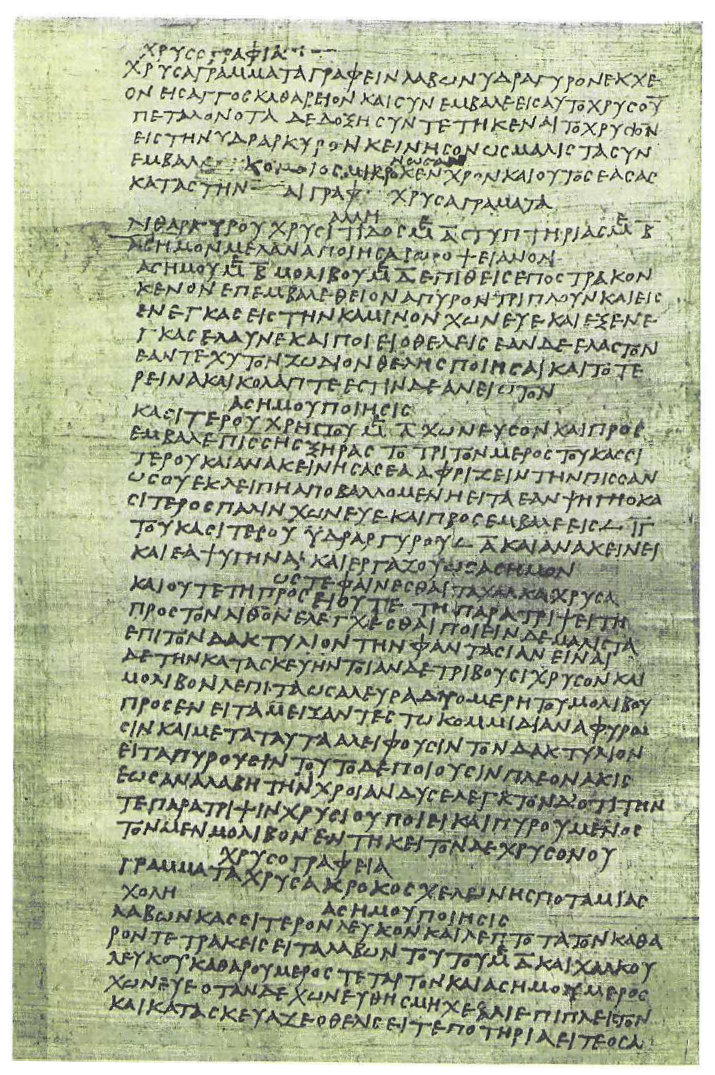 ΧΡΥΣΟΓΡΑΦΙΑ
ΧΡΥΣΑΓΡΑΜΜΑΤΑΓΡΑΦΕΙΝΛΑΒΩΝΥΔΡΑΓΥΡΟΝΕΚΧΕ
ΟΝΕΙΣΑΓΓΟΣΚΑΘΑΡΕΙΟΝΚΑΙΣΥΝΕΜΒΑΛΕΕΙΣΑΥΤΟΧΡΥΣΟΥ
ΠΕΤΑΛΟΝΟΤΑΔΕΔΟΞΗΣΥΝΤΕΤΗΚΕΝΑΙΤΟΧΡΥΣΟΝ
ΕΙΣΤΗΝΥΔΡΑΡΚΥΡΟΝΚΕΙΝΗΣΟΝΩΣΜΑΛΙΣΤΑΣΥΝ
ΕΜΒΑΛΕ ΚΟΜΕΟΣΜΙΚΡΟ ΧΡΟΝΚΑΙΟΥΤΟΣΕΑΣΑΣ
ΚΑΤΑΣΤΗΝ ΓΡΑΦ ΧΡΥΣΑΓΡΑΜΑΤΑ
ΑΛΛΗ
ΛΙΘΑΡΓΥΡΟΥΧΡΥΣΙΤΙΔΟΣΜΑΣΤΥΠΤΗΡΙΑΣΜΒ
ΑΣΗΜΟΝΜΕΛΑΝΑΠΟΙΗΣΑΙ
ΑΣΗΜΟΥΜΒΜΟΛΙΒΟΥΜΑΕΠΙΘΕΙΣΕΠΟΣΤΡΑΚΟΝ
ΚΕΝΟΝΕΠΕΜΒΑΛΕΘΕΙΟΝΑΠΥΡΟΝΤΡΙΠΛΟΥΝΚΑΙΕΙΣ
ΕΝΕΓΚΑΣΕΙΣΤΗΝΚΑΜΙΝΟΝΧΩΝΕΥΕΚΑΙΕΞΕΝΕ
ΓΚΑΣΕΛΑΥΝΕΚΑΙΠΟΙΕΙΟΘΕΛΕΙΣΕΑΝΔΕΕΛΑΣΤΟΝ
ΕΑΝΤΕΧΥΤΟΝΖΩΔΙΟΝΘΕΛΗΣΠΟΙΗΣΑΙΚΑΙΤΟΤΕ
ΡΕΙΝΑΚΑΙΚΟΛΑΠΤΕΕΣΤΙΝΔΕΑΝΕΙΩΤΟΝ
ΑΣΗΜΟΥΠΟΙΗΣΙΣ
ΚΑΣΙΤΕΡΟΥΧΡΗΣΤΟΥΜΑΧΩΝΕΥΣΟΝΚΑΙΠΡΟΣ
ΕΜΒΑΛΕΠΙΣΣΗΣΞΗΡΑΣΤΟΤΡΙΤΟΝΜΕΡΟΣΤΟΥΚΑΣΣΙ
ΤΕΡΟΥΚΑΙΑΝΑΚΕΙΝΗΣΑΣΕΑΑΦΡΙΖΕΙΝΤΗΝΠΙΣΣΑΝ
ΩΣΟΥΕΚΛΕΙΠΗΑΠΟΒΑΛΛΟΜΕΝΗΕΙΤΑΕΑΝΨΗΓΗΟΚΑ
ΣΙΤΕΡΟΣΠΑΛΙΝΧΩΝΕΥΕΚΑΙΠΡΟΣΕΜΒΑΛΕΕΙΣ ΙΓ
ΤΟΥΚΑΣΙΤΕΡΟΥΥΔΡΑΡΓΥΡΟΥ ΑΚΑΙΑΝΑΚΕΙΝΕΙ
ΚΑΙΕΑΨΥΓΗΝΑΙΚΑΙΕΡΓΑΖΟΥΩΣΑΣΗΜΟΝ
ΩΣΤΕΦΑΙΝΕΣΘΑΙΤΑΧΑΛΚΑΧΡΥΣΑ
ΚΑΙΟΥΤΕΤΗΠΡΟΣΕΙΟΥΤΙΕΤΗΠΑΡΑΤΡΙΨΕΙΤΗ
ΠΡΟΣΤΟΝΛΙΘΟΝΕΛΕΓΧΕΣΘΑΙΠΟΙΕΙΝΔΕΜΑΛΙΣΤΑ
ΕΠΙΤΟΝΔΑΚΤΥΛΙΟΝΤΗΝΦΑΝΤΑΣΙΑΝΕΙΝΑΙ
ΔΕΤΗΝΚΑΤΑΣΚΕΥΗΝΤΟΙΑΝΔΕΤΡΙΒΟΥΣΙΧΡΥΣΟΝΚΑΙ
ΜΟΛΙΒΟΝΛΕΠΙΤΑΩΣΑΛΕΥΡΑΔΥΟΜΕΡΗΤΟΥΜΟΛΙΒΟΥ
ΠΡΟΣΕΝΕΙΤΑΜΕΙΞΑΝΤΕΣΤΩΚΟΜΜΙΔΙΑΝΑΦΥΡΟΥ
ΣΙΝΚΑΙΜΕΤΑΤΑΥΤΑΑΛΕΙΦΟΥΣΙΝΤΟΝΔΑΚΤΥΛΙΟΝ
ΕΙΤΑΠΥΡΟΥΣΙΝΤΟΥΤΟΔΕΠΟΙΟΥΣΙΝΠΛΕΟΝΑΚΙΣ
ΕΩΣΑΝΑΛΑΒΗΤΗΝΧΡΟΙΑΝΔΥΣΕΛΕΓΚΤΟΝΔΙΟΤΙΤΗΝ
ΤΕΠΑΡΑΤΡΙΨΙΝΧΡΥΣΙΟΥΠΟΙΕΙΚΑΙΠΥΡΟΥΜΕΝΟΣ
ΤΟΝΜΕΝΜΟΛΙΒΟΝΕΝΤΗΚΕΙΤΟΝΔΕΧΡΥΣΟΝΟΥ
ΧΡΥΣΟΓΡΑΦΕΙΑ
ΓΡΑΜΜΑΤΑΧΡΥΣΑΚΡΟΚΟΣΧΕΛΕΙΝΗΣΠΟΤΑΜΙΑΣ
ΧΟΛΗ
ΑΣΗΜΟΥΠΟΙΗΣΙΣ
ΛΑΒΩΝΚΑΣΣΕΙΤΕΡΟΝΛΕΥΚΟΝΚΑΙΛΕΠΤΟΤΑΤΟΝΚΑΘΑ
ΡΟΝΤΕΤΡΑΚΕΙΣΕΙΤΑΛΑΒΩΝΤΟΥΤΟΥΜΔΚΑΙΧΑΛΚΟΥ
ΛΕΥΚΟΥΚΑΘΑΡΟΥΜΕΡΟΣΤΕΤΑΡΤΟΝΚΑΙΑΣΗΜΟΥΜΕΡΟΣ
ΧΩΝΕΥΕΟΤΑΝΔΕΧΩΝΕΥΘΗΣΜΗΧΕΣΑΙΕΠΙΠΛΕΙΣΤΟΝ
ΚΑΙΚΑΤΑΣΚΕΥΑΖΕΟΘΕΛΕΣΕΙΤΕΠΟΤΗΡΙΑΕΙΤΕΟΣΑ